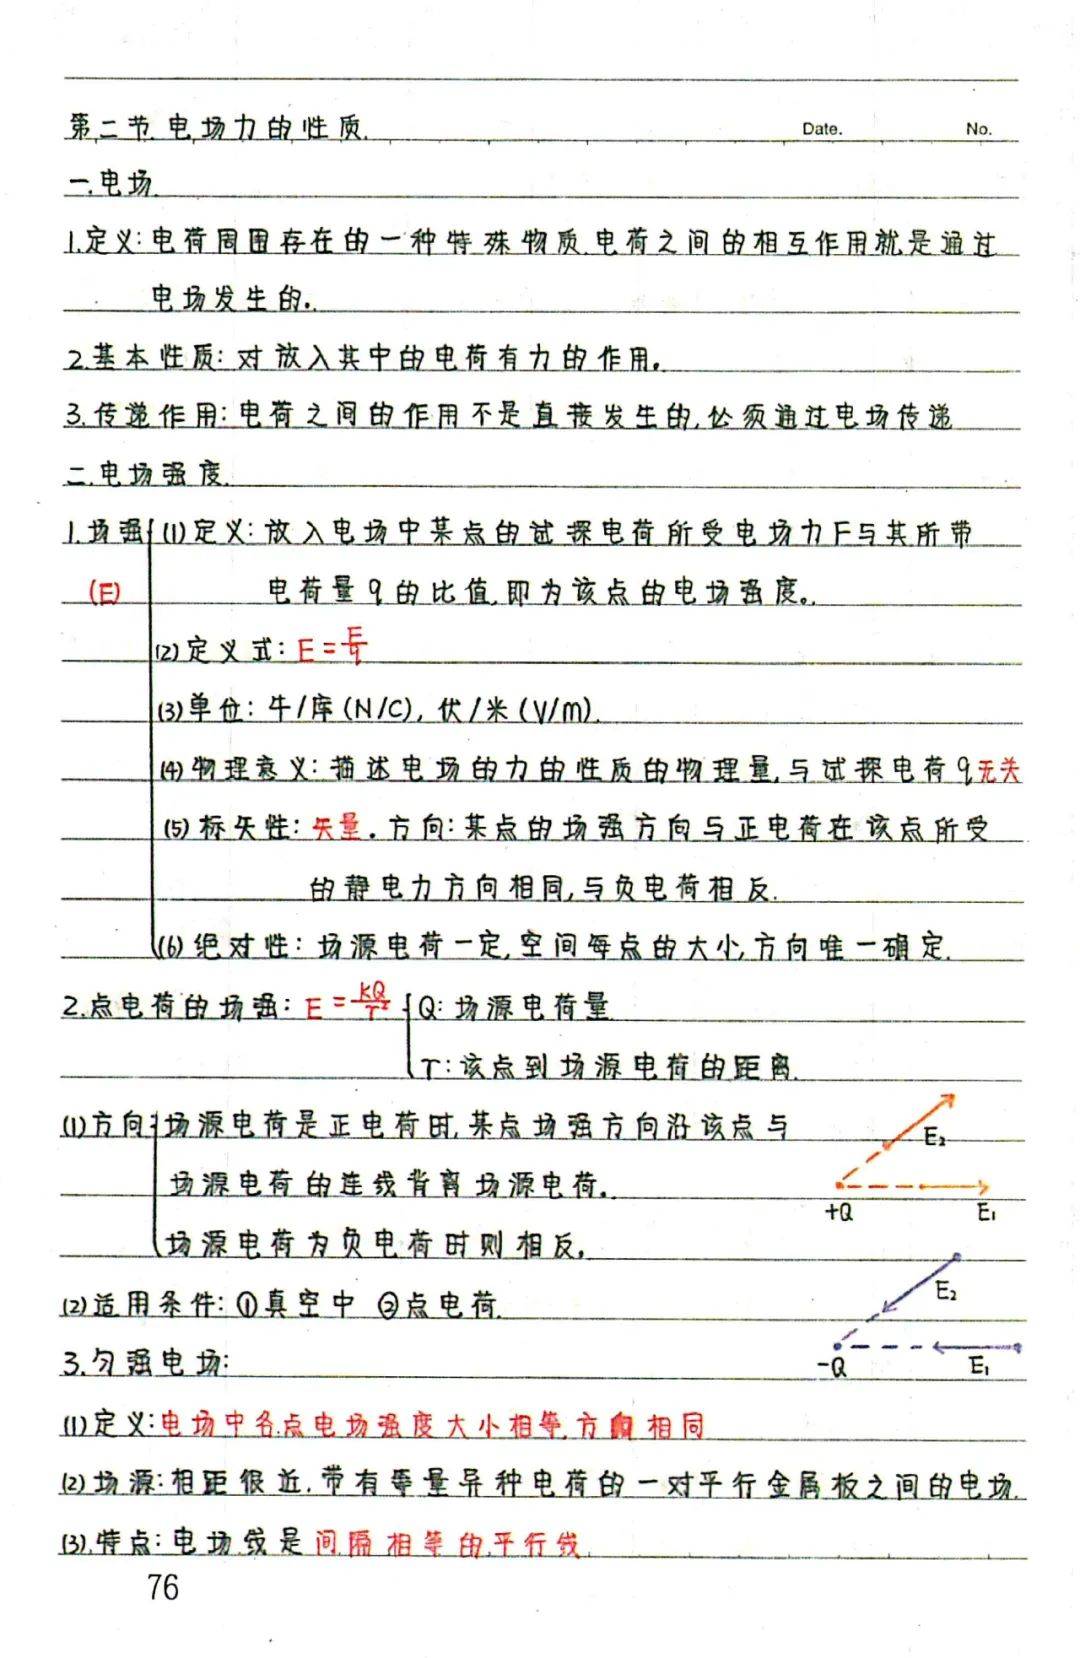 第二节.电场力的性质.
Date. No.
一.电场.
1.定义:电荷周围存在的一种特殊物质.电荷之间的相互作用就是通过
电场发生的.
2.基本性质:对放入其中的电荷有力的作用。
3.传递作用:电荷之间的作用不是直接发生的,必须通过电场传递
二.电场强度.
1.场强 (1)定义:放入电场中某点的试探电荷所受电场力F与其所带
(E) 电荷量q的比值,即为该点的电场强度。
(2)定义式:E=F/q
(3)单位:牛/库(N/C),伏/米(V/m).
(4)物理意义:描述电场的力的性质的物理量,与试探电荷q无关
(5)标矢性:矢量.方向:某点的场强方向与正电荷在该点所受
的静电力方向相同,与负电荷相反.
(6)绝对性:场源电荷一定,空间每点的大小,方向唯一确定.
2.点电荷的场强:E=kQ/r² Q:场源电荷量
r:该点到场源电荷的距离.
(1)方向 场源电荷是正电荷时,某点场强方向沿该点与
场源电荷的连线背离场源电荷.
场源电荷为负电荷时则相反.
E₂
+Q E₁
(2)适用条件:①真空中 ②点电荷.
E₂
-Q E₁
3.匀强电场:
(1)定义:电场中各点电场强度大小相等,方向相同
(2)场源:相距很近,带有等量异种电荷的一对平行金属板之间的电场.
(3).特点:电场线是间隔相等的平行线.
76